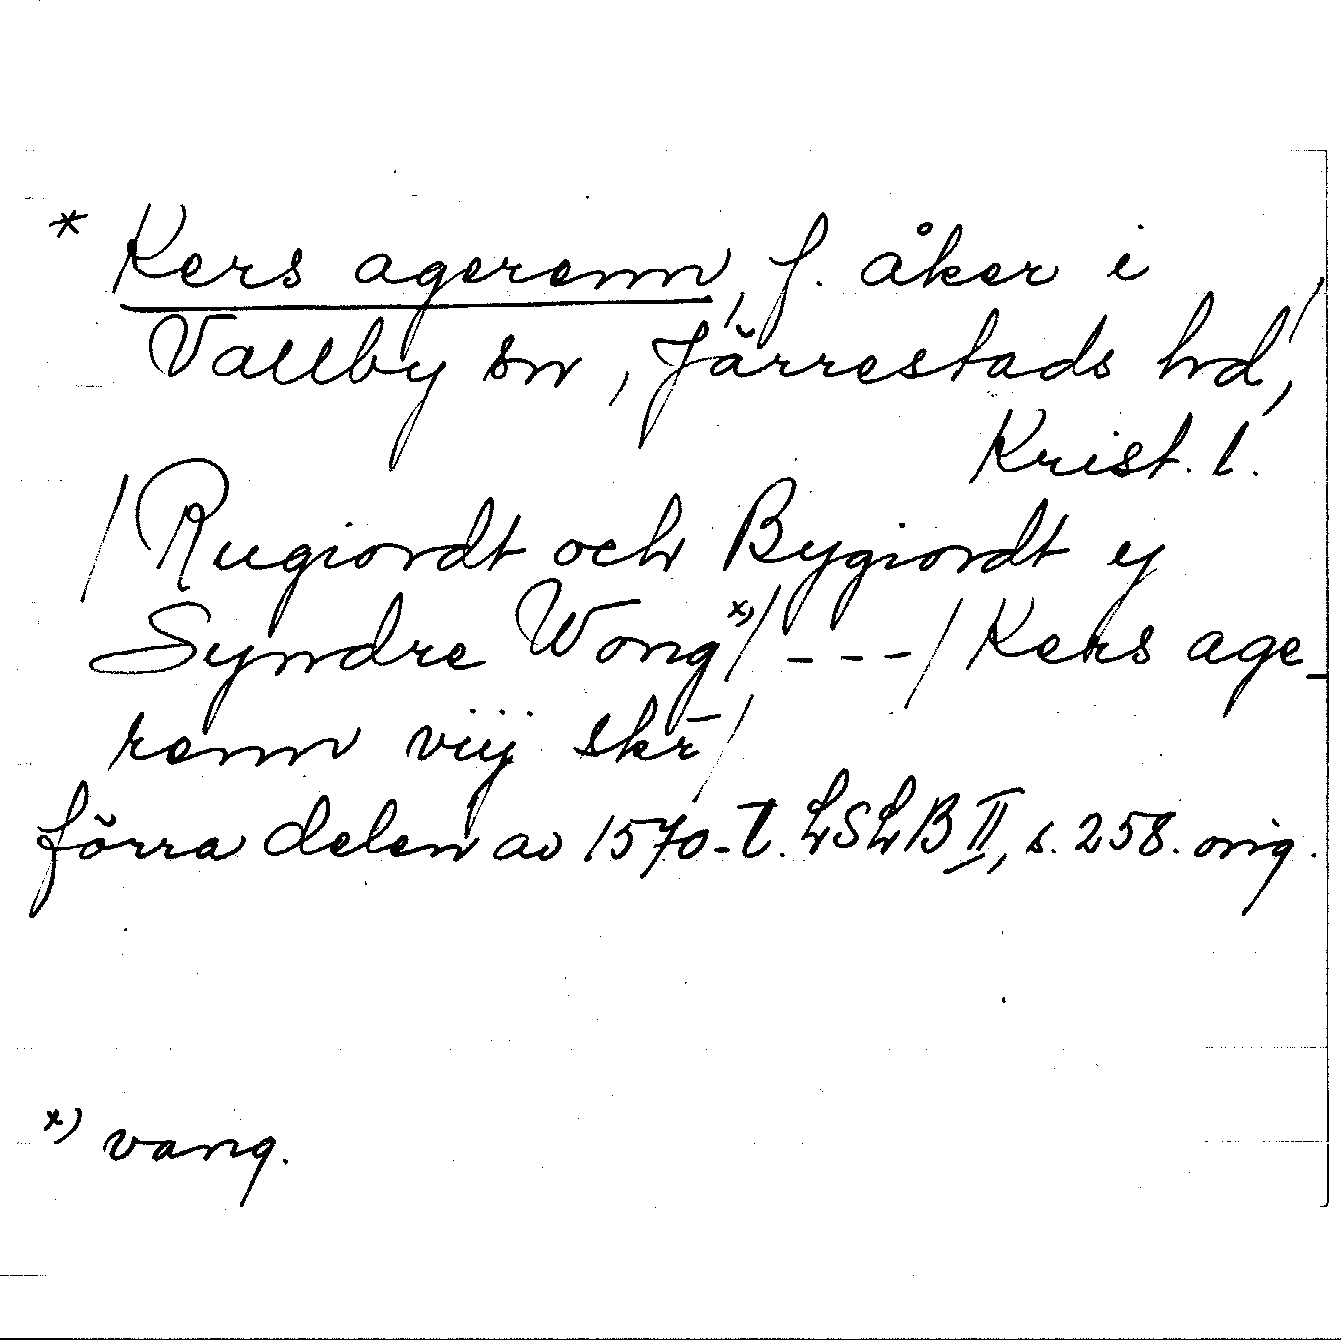 * Kers agerenn, f. åker i
Vallby sn, Järrestads hd,
Krist. l.
/Rugiordt och Bygiordt y
Syndre Wong x)/ - - - / Kers age-
renn viij skr̄/
förra delen av 1570-t. LSLB II, s. 258. orig.
x) vang.